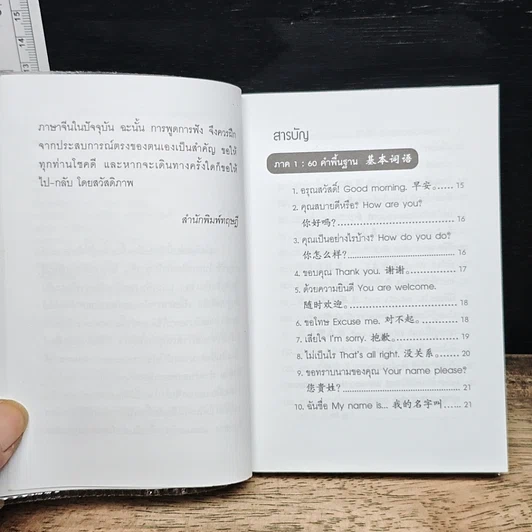 15
14
13
ภาษาจีนในปัจจุบัน ฉะนั้น การพูดการฟัง จึงควรฝึก
จากประสบการณ์ตรงของตนเองเป็นสำคัญ ขอให้
ทุกท่านโชคดี และหากจะเดินทางครั้งใดก็ขอให้
ไป-กลับ โดยสวัสดิภาพ
สำนักพิมพ์ทฤษฎี
สารบัญ
ภาค 1 : 60 คำพื้นฐาน 基本词语
1. อรุณสวัสดิ์! Good morning. 早安。..... 15
2. คุณสบายดีหรือ? How are you?
你好吗?........................................ 16
3. คุณเป็นอย่างไรบ้าง? How do you do?
你怎么样?..................................... 16
4. ขอบคุณ Thank you. 谢谢。............. 17
5. ด้วยความยินดี You are welcome.
随时欢迎。................................... 18
6. ขอโทษ Excuse me. 对不起。........... 18
7. เสียใจ I'm sorry. 抱歉。................. 19
8. ไม่เป็นไร That's all right. 没关系。.. 20
9. ขอทราบนามของคุณ Your name please?
您贵姓?....................................... 21
10. ฉันชื่อ My name is... 我的名字叫...... 21